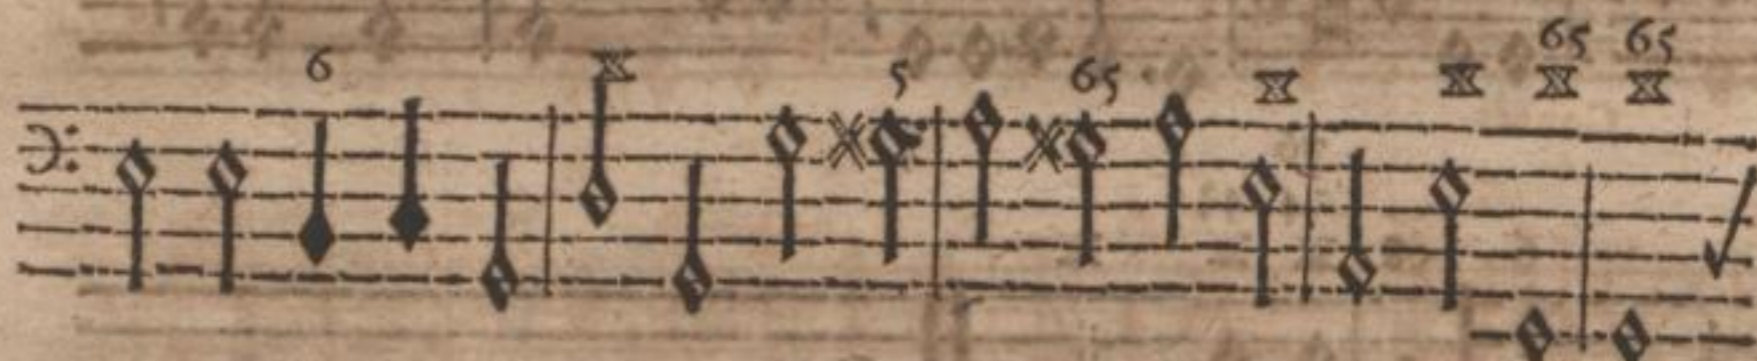 65 65
6 5 65